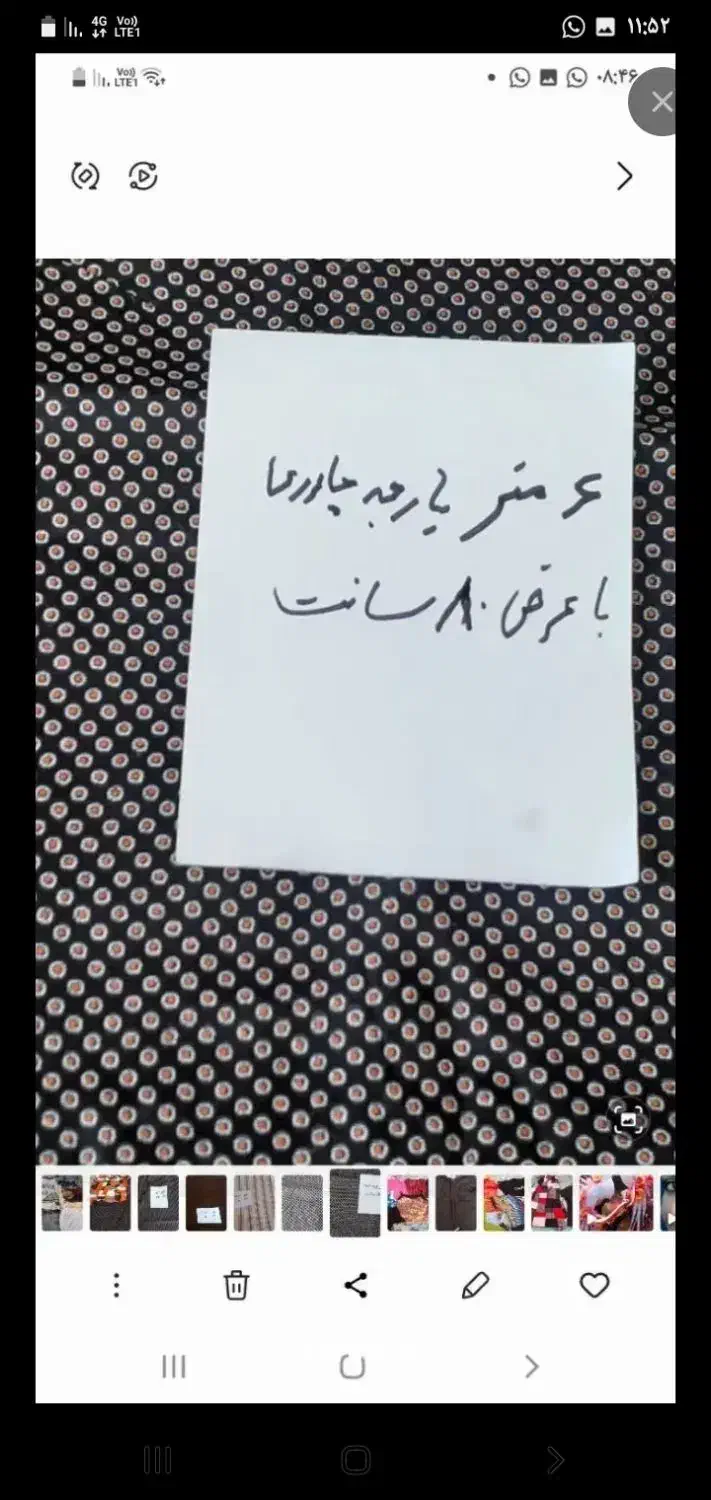 4G
Vo)
LTE1
۱۱:۵۲
Vo)
LTE1
۰۸:۴۶
۶ متر پارچه چادری
با عرض ۸۰ سانت